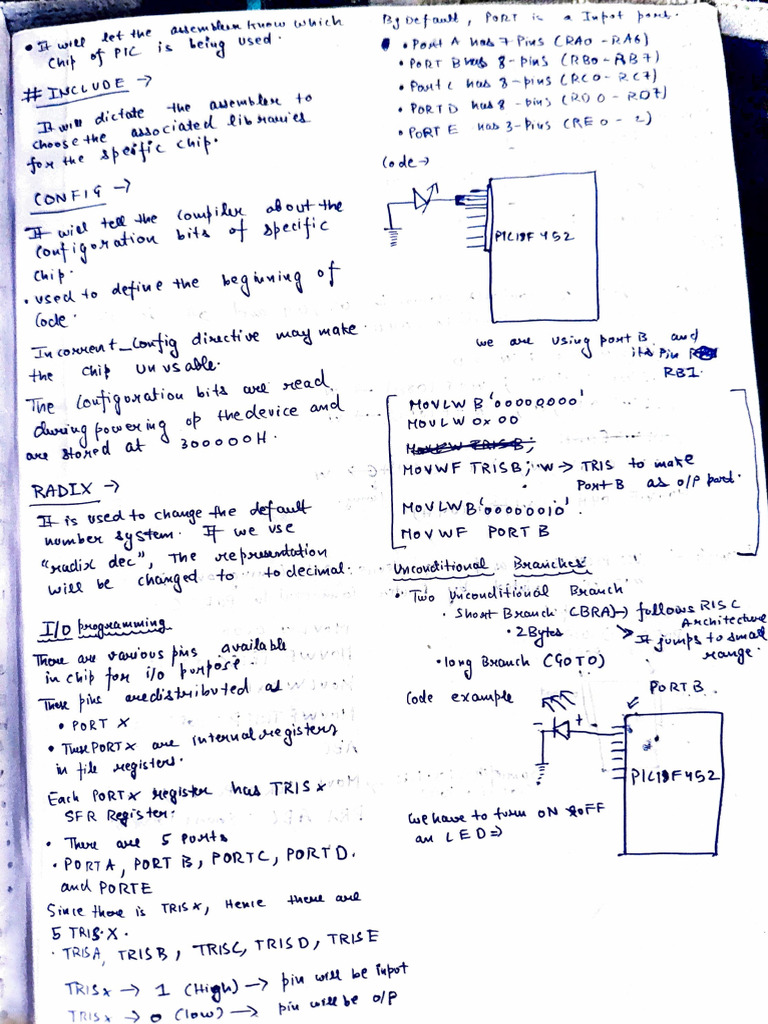 • It will let the assembler know which
chip of PIC is being used.
# INCLUDE →
It will dictate the assembler to
choose the associated libraries
for the specific chip.
CONFIG →
It will tell the compiler about the
configuration bits of specific
chip.
• used to define the beginning of
code.
Incorrect_config directive may make
the chip unusable.
The configuration bits are read
during powering up the device and
are stored at 300000H.
RADIX →
It is used to change the default
number system. If we use
"radix dec", The representation
will be changed to to decimal.
I/O programming
There are various pins available
in chip for i/o purpose
These pins are distributed as
• PORT X
• These PORTX are internal registers
in file registers.
Each PORTX register has TRISX
SFR Register.
• There are 5 Ports
• PORTA, PORT B, PORTC, PORTD.
and PORTE
Since there is TRISX, Hence there are
5 TRIS.X.
• TRISA, TRISB, TRISC, TRISD, TRISE
TRISX → 1 (High) → pin will be input
TRISX → 0 (low) → pin will be o/p
By Default, PORT is a Input port.
• Port A has 7 Pins (RA0 - RA6)
• PORT B has 8-pins (RB0 - RB7)
• Port C has 8-pins (RC0 - RC7)
• PORTD has 8-pins (RD0 - RD7)
• PORT E has 3-Pins (RE0 - 2)
Code →
PIC18F452
We are using port B and
its pin
RB1.
MOVLW B'00000000'
MOVLW 0x00
MOVWF TRISB; W → TRIS to make
Port B as o/p port.
MOVLW B'00000010'
MOVWF PORT B
Unconditional Branches
• Two Unconditional Branch
• Short Branch (BRA) → follows RISC
Architecture
• 2Bytes
→ It jumps to small
range.
• long Branch (GOTO)
Code example
PORTB
- +
PIC18F452
We have to turn ON & OFF
an LED ⇒